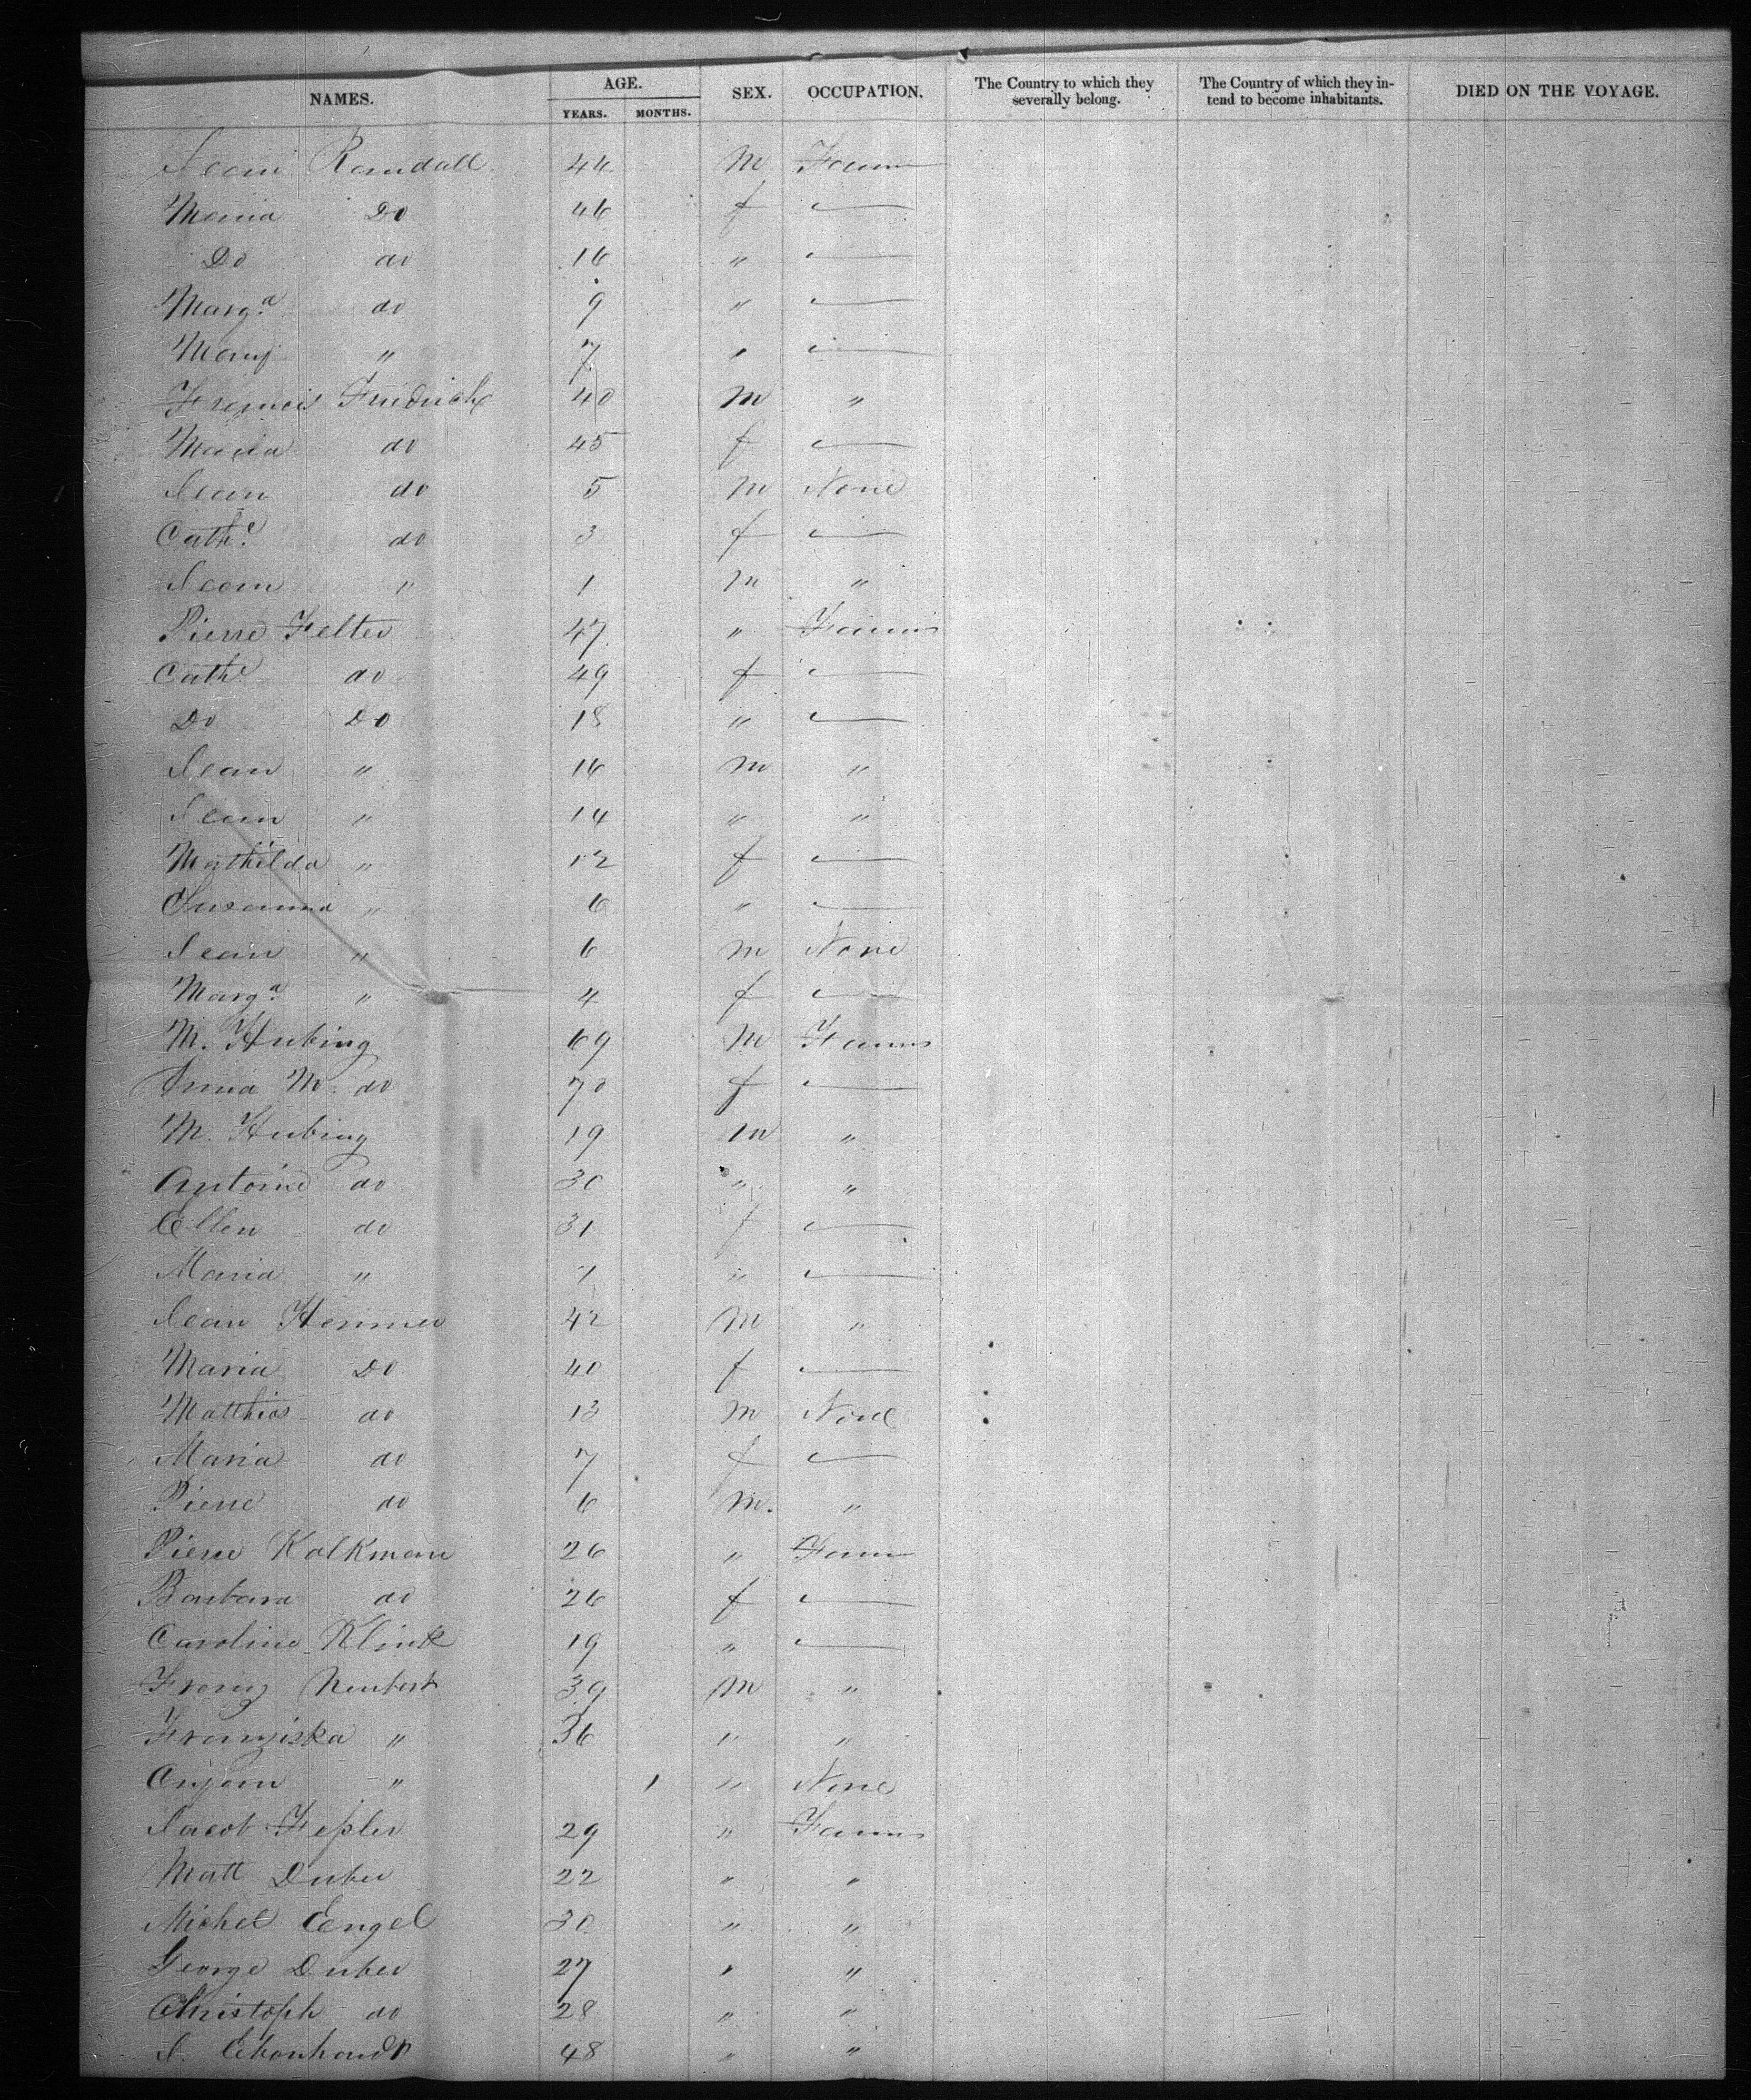 NAMES. AGE. YEARS. MONTHS. SEX. OCCUPATION. The Country to which they severally belong. The Country of which they intend to become inhabitants. DIED ON THE VOYAGE.
Jean Ramdall 44 m Farm
Maria Do 46 f —
Do do 16 " —
Marg.a do 9 " —
Mary " 7 " —
Francois Friedrich 40 m "
Maria do 45 f —
Jean do 5 m None
Cath.e do 3 f —
Jean " 1 m "
Pierre Felter 47 " Farmer
Cath.e do 49 f —
Do Do 18 " —
Jean " 16 m "
Jean " 14 " "
Mathilda " 12 f —
Susanna " 6 " —
Jean " 6 m None
Marg.a " 4 f —
M. Hubing 69 m Farmer
Anna M. do 70 f —
M. Hubing 19 m "
Antoine do 30 " "
Ellen do 31 f —
Maria " 1 " —
Jean Hemmer 42 m "
Maria Do 40 f —
Matthias do 13 m None
Maria do 7 f —
Pierre do 6 m. "
Pierre Kalkman 26 " Farm
Barbara do 26 f —
Caroline Klink 19 " —
Franz Neubert 39 m "
Franziska " 36 " "
" 1 " None
Jacob Feßler 29 " Farmer
Matt Duber 22 " "
Michel Eengel 30 " "
George Duber 27 " "
Christoph do 28 " "
J. 48 " "